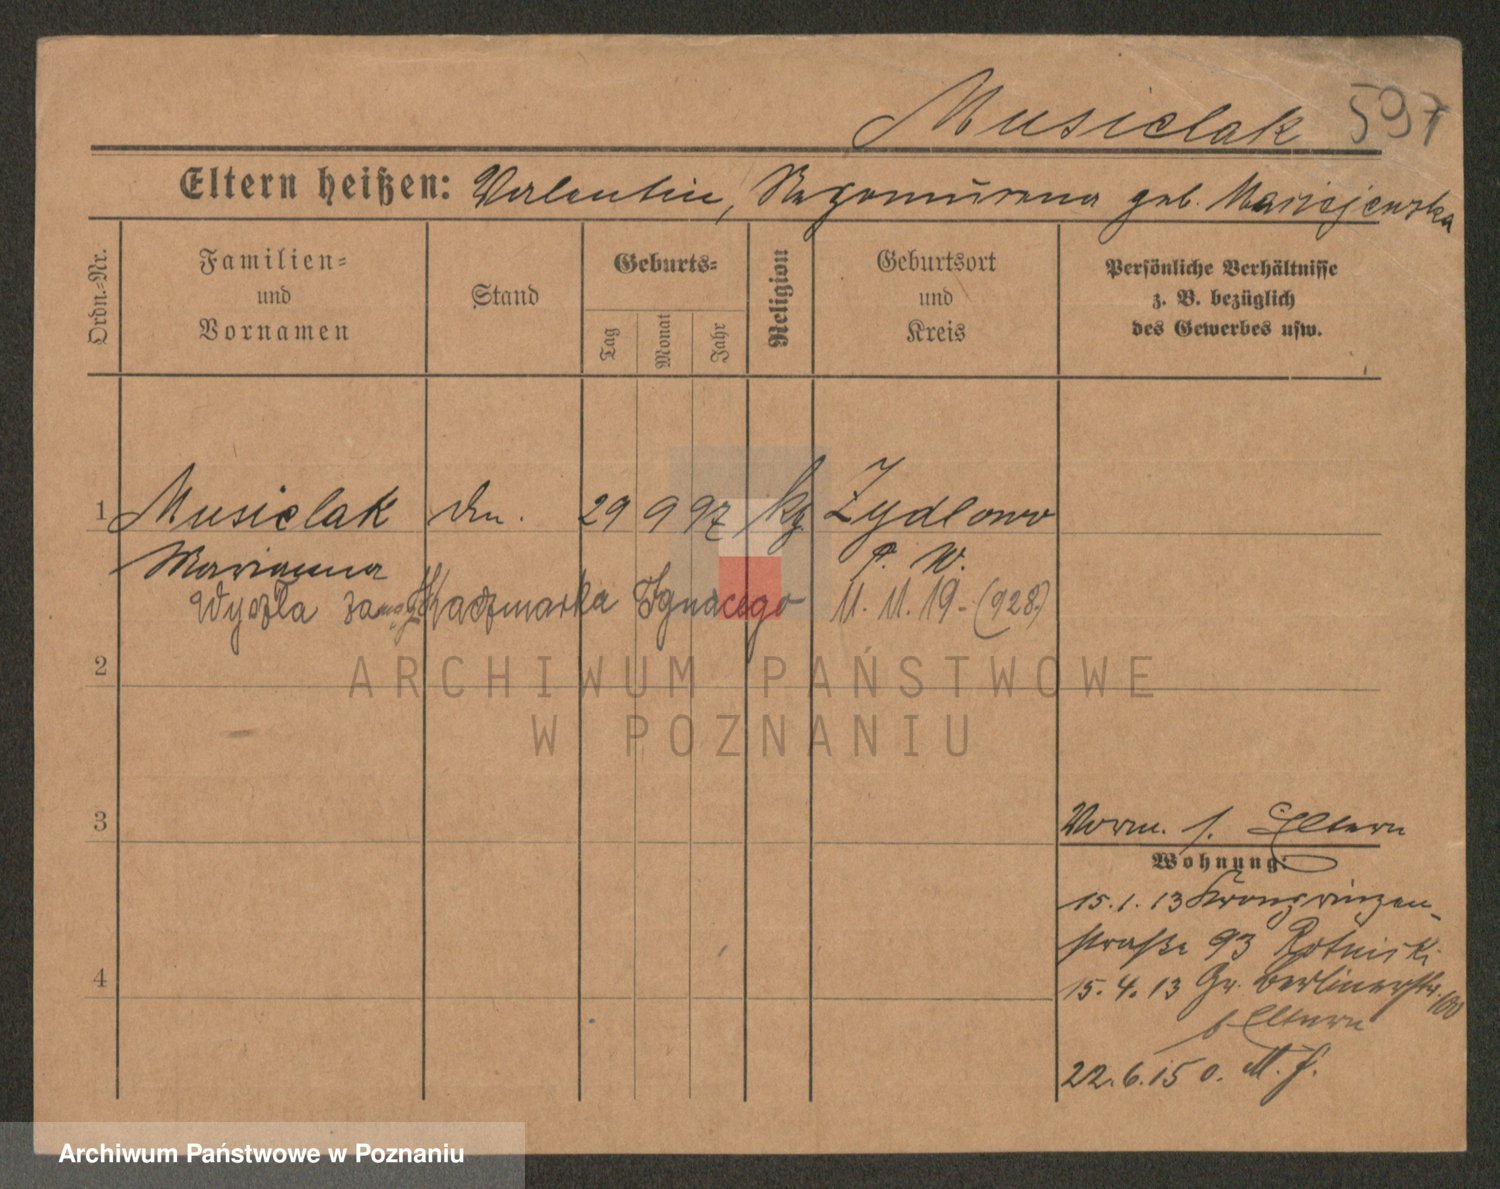 Musielak 597
Eltern heißen: Valentin, Nepomucena geb. Maciejewska
Ordn.=Nr.
Familien=
und
Vornamen
Stand
Geburts=
Tag
Monat
Jahr
Religion
Geburtsort
und
Kreis
Persönliche Verhältnisse
z. B. bezüglich
des Gewerbes usw.
1 Musielak 29 9 97 Żydlowo
Marianna P. W.
Wyszła Kaczmarka Ignacego 11. 11. 19 - (928)
2
ARCHIWUM PAŃSTWOWE
W POZNANIU
3
Vorm. s. Eltern
Wohnung:
15. 1. 13 Kronprinzen-
straße 93 Rotnicki
4
15. 4. 13 Gr. Berlinerstr. 100
b Eltern
22. 6. 15 o.
Archiwum Państwowe w Poznaniu